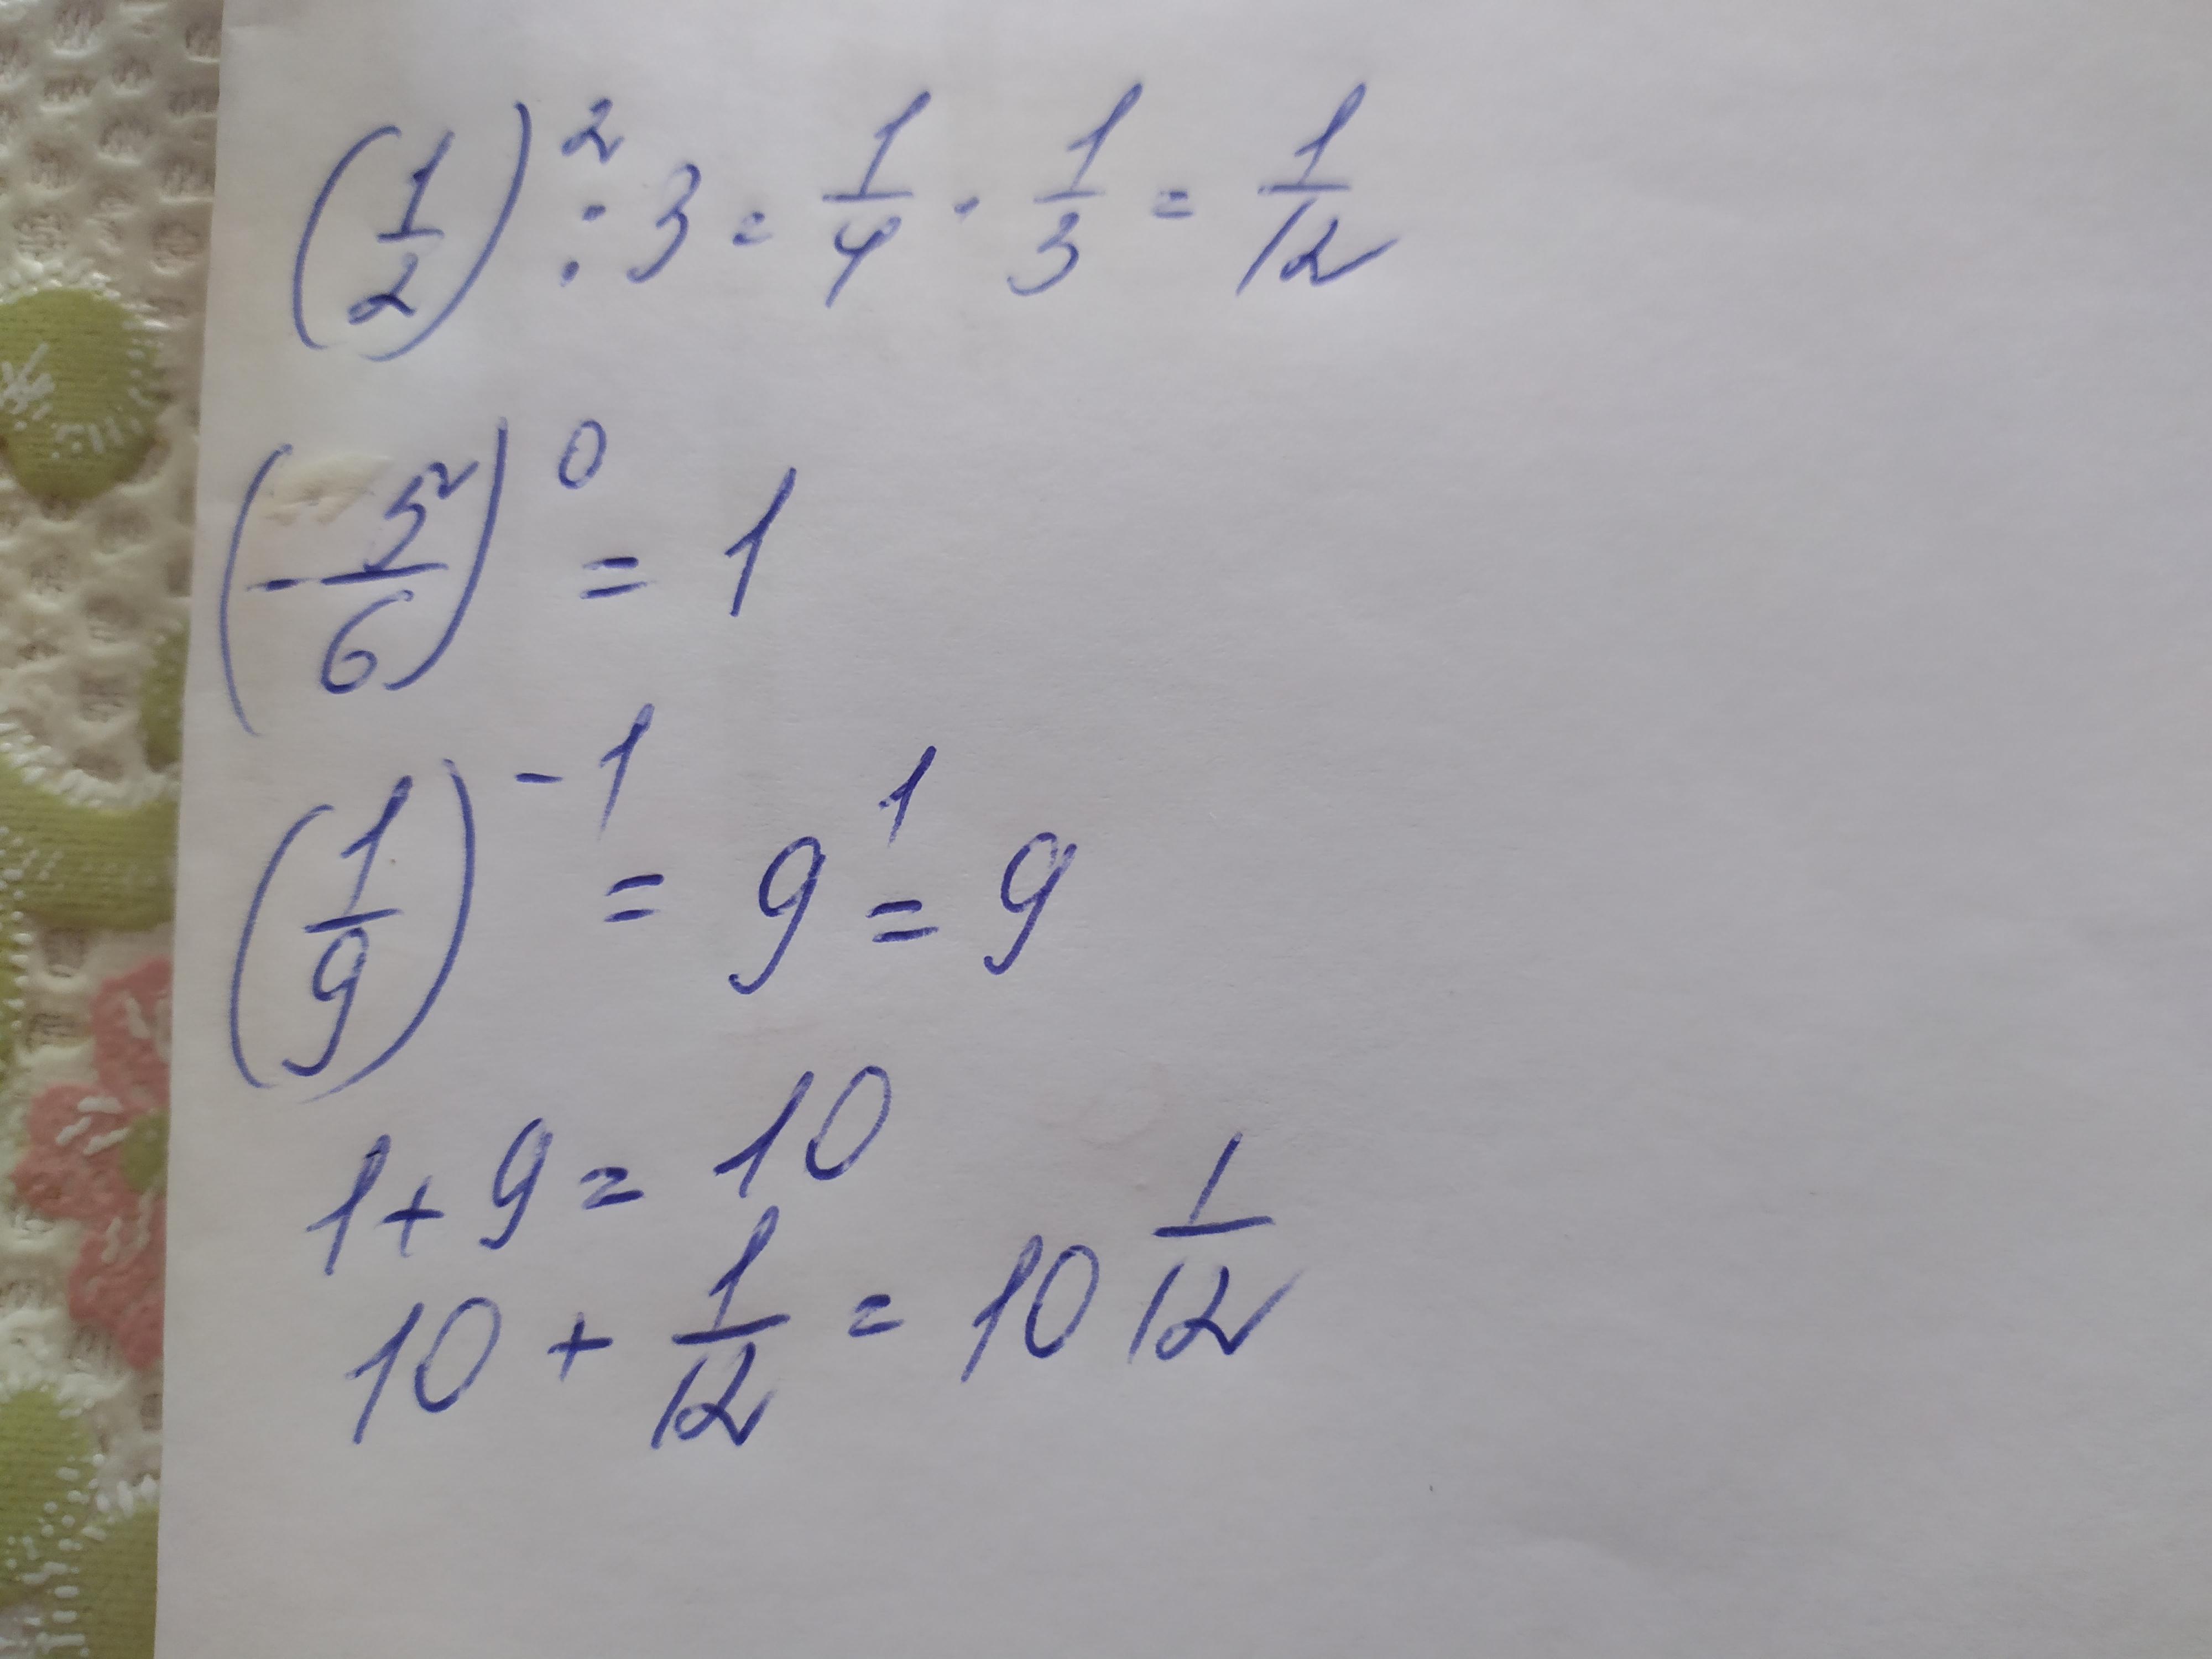 (1/2)² : 3 = 1/4 · 1/3 = 1/12
(-5²/6)⁰ = 1
(1/9)⁻¹ = 9¹ = 9
1 + 9 = 10
10 + 1/12 = 10 1/12